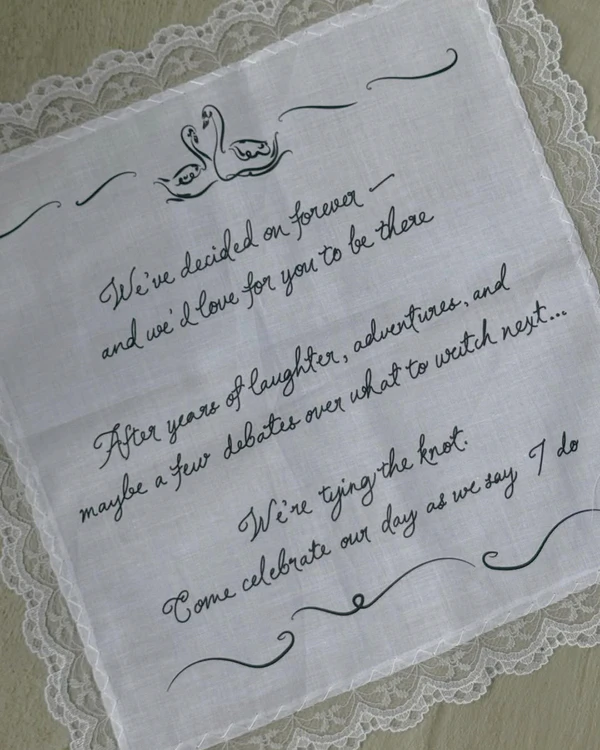 We've decided on forever —
and we'd love for you to be there
After years of laughter, adventures, and
maybe a few debates over what to watch next...
We're tying the knot.
Come celebrate our day as we say I do